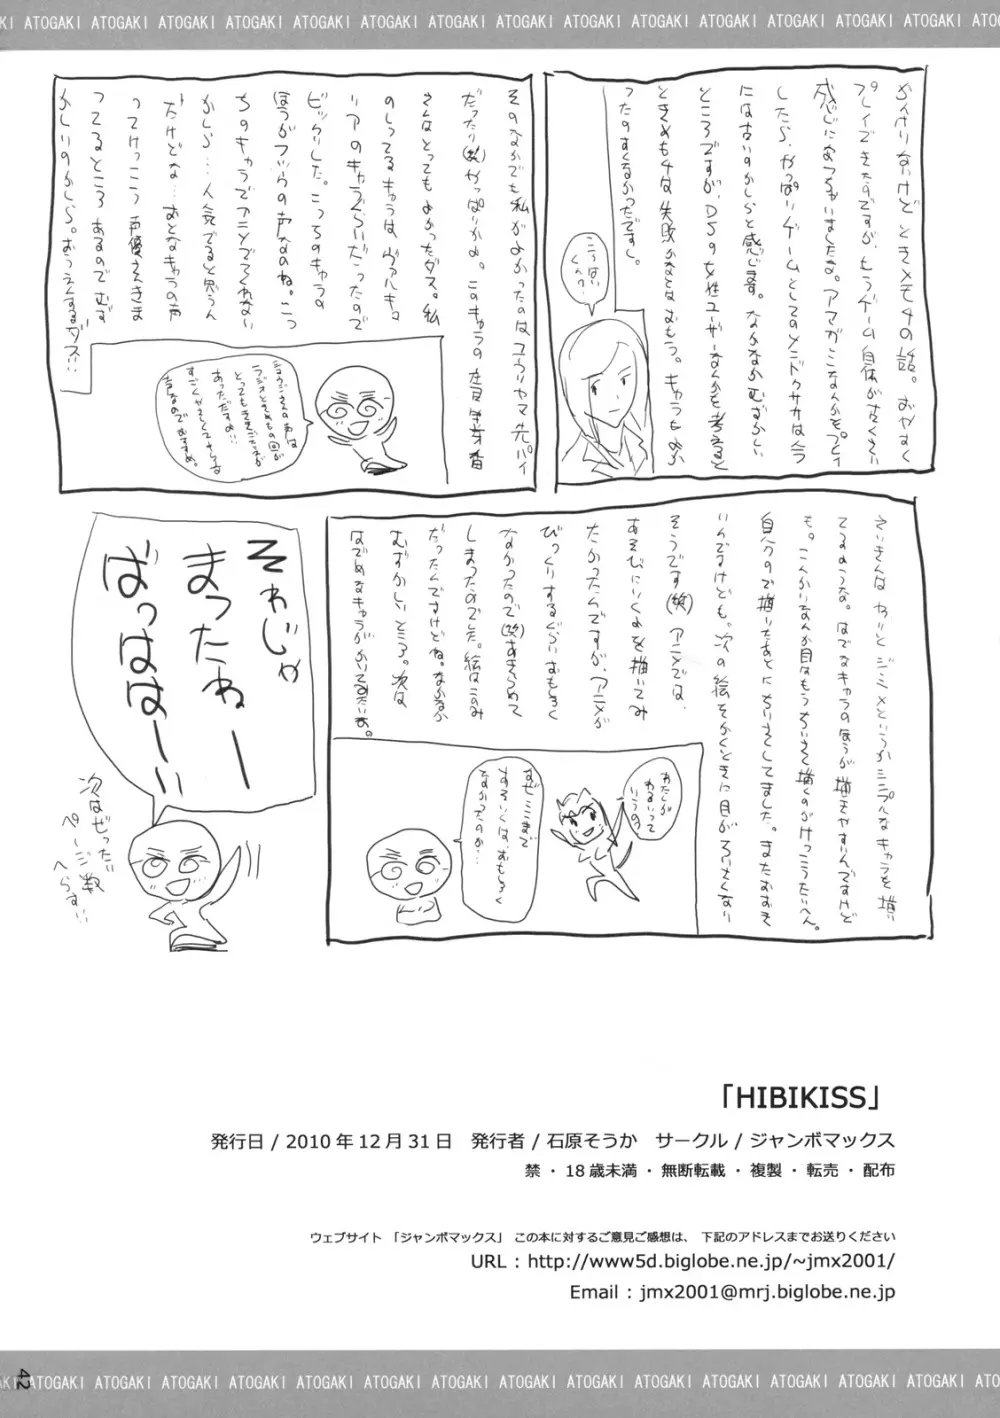 ATOGAKI ATOGAKI ATOGAKI ATOGAKI ATOGAKI ATOGAKI ATOGAKI ATOGAKI ATOGAKI ATOGAKI ATOGAKI ATOGAKI ATOGAKI ATOGAKI ATOGAKI
かんけいないけど ときメモ4の話。おやすく
プレイできたのですが、もうゲーム自体が古くさい
感じになっちゃいましたな。アマガミなんかもプレイ
したら、やっぱりゲームとしてのメンドクササは今
には古いのかしらと感じます。なかなかむずかしい
ところですが、DSの女性ユーザーなんかを考えると
ときめも4は失敗かなとはおもう。キャラもよか
ったのですくなかったです。
こうはい
くんの?
そのなかでも私がよかったのはユウリヤマ先パイ
だったり(笑)やっぱりかぁ。このキャラの
さんはとってもよかったダス。私
のしってるキャラは、ヴァルキ。
リアのキャラぐらいだったので
ビックリした。こっちのキャラの
ほうがフツウの声なのね。こっ
ちのキャラでアニメでてくれない
かしら…人気でると思うん
だけどな…おとなキャラの声
ってけっこう声優さんきま
ってるところあるのでむず
かしいのかしら。おうえんするダス!!
とってもききごたえが
あっただすぅ!!
すごくやさしくてステキな
声なのでおすすめ。
さいきんはわりとジミメというかシンプルなキャラを描い
てるような。はでなキャラのほうが描きやすいんですけど
も。こんかいなんか目はもうちいさく描くのがけっこうたいへん。
自分ので描いたあとにちいさくしてました。またおおき
いんですけども。次の絵をかくときに目がちいさくなり
そうです(笑)アニメでは、
あそびにいくヨを描いてみ
たかったんですが、アニメが
びっくりするぐらいおもしろく
なかったので(笑)あきらめて
しまったのでした。絵はこのみ
だったんですけどね。なかなか
むずかしいところ。次は
はでめなキャラがかいてみたいなぁ。
わたしが
わるいって
いうの
なぜここまで
するいくは、おもしろく
なかったのか…
それじゃ
まったねー
ばっははーい
次はぜったい
ページ数
へらすい
「HIBIKISS」
発行日 / 2010 年 12 月 31 日　発行者 / 石原そうか　サークル / ジャンボマックス
禁 ・ 18 歳未満 ・ 無断転載 ・ 複製 ・ 転売 ・ 配布
ウェブサイト 「ジャンボマックス」 この本に対するご意見ご感想は、 下記のアドレスまでお送りください
URL : http://www5d.biglobe.ne.jp/~jmx2001/
Email : jmx2001@mrj.biglobe.ne.jp
42
ATOGAKI ATOGAKI ATOGAKI ATOGAKI ATOGAKI ATOGAKI ATOGAKI ATOGAKI ATOGAKI ATOGAKI ATOGAKI ATOGAKI ATOGAKI ATOGAKI ATOGAKI